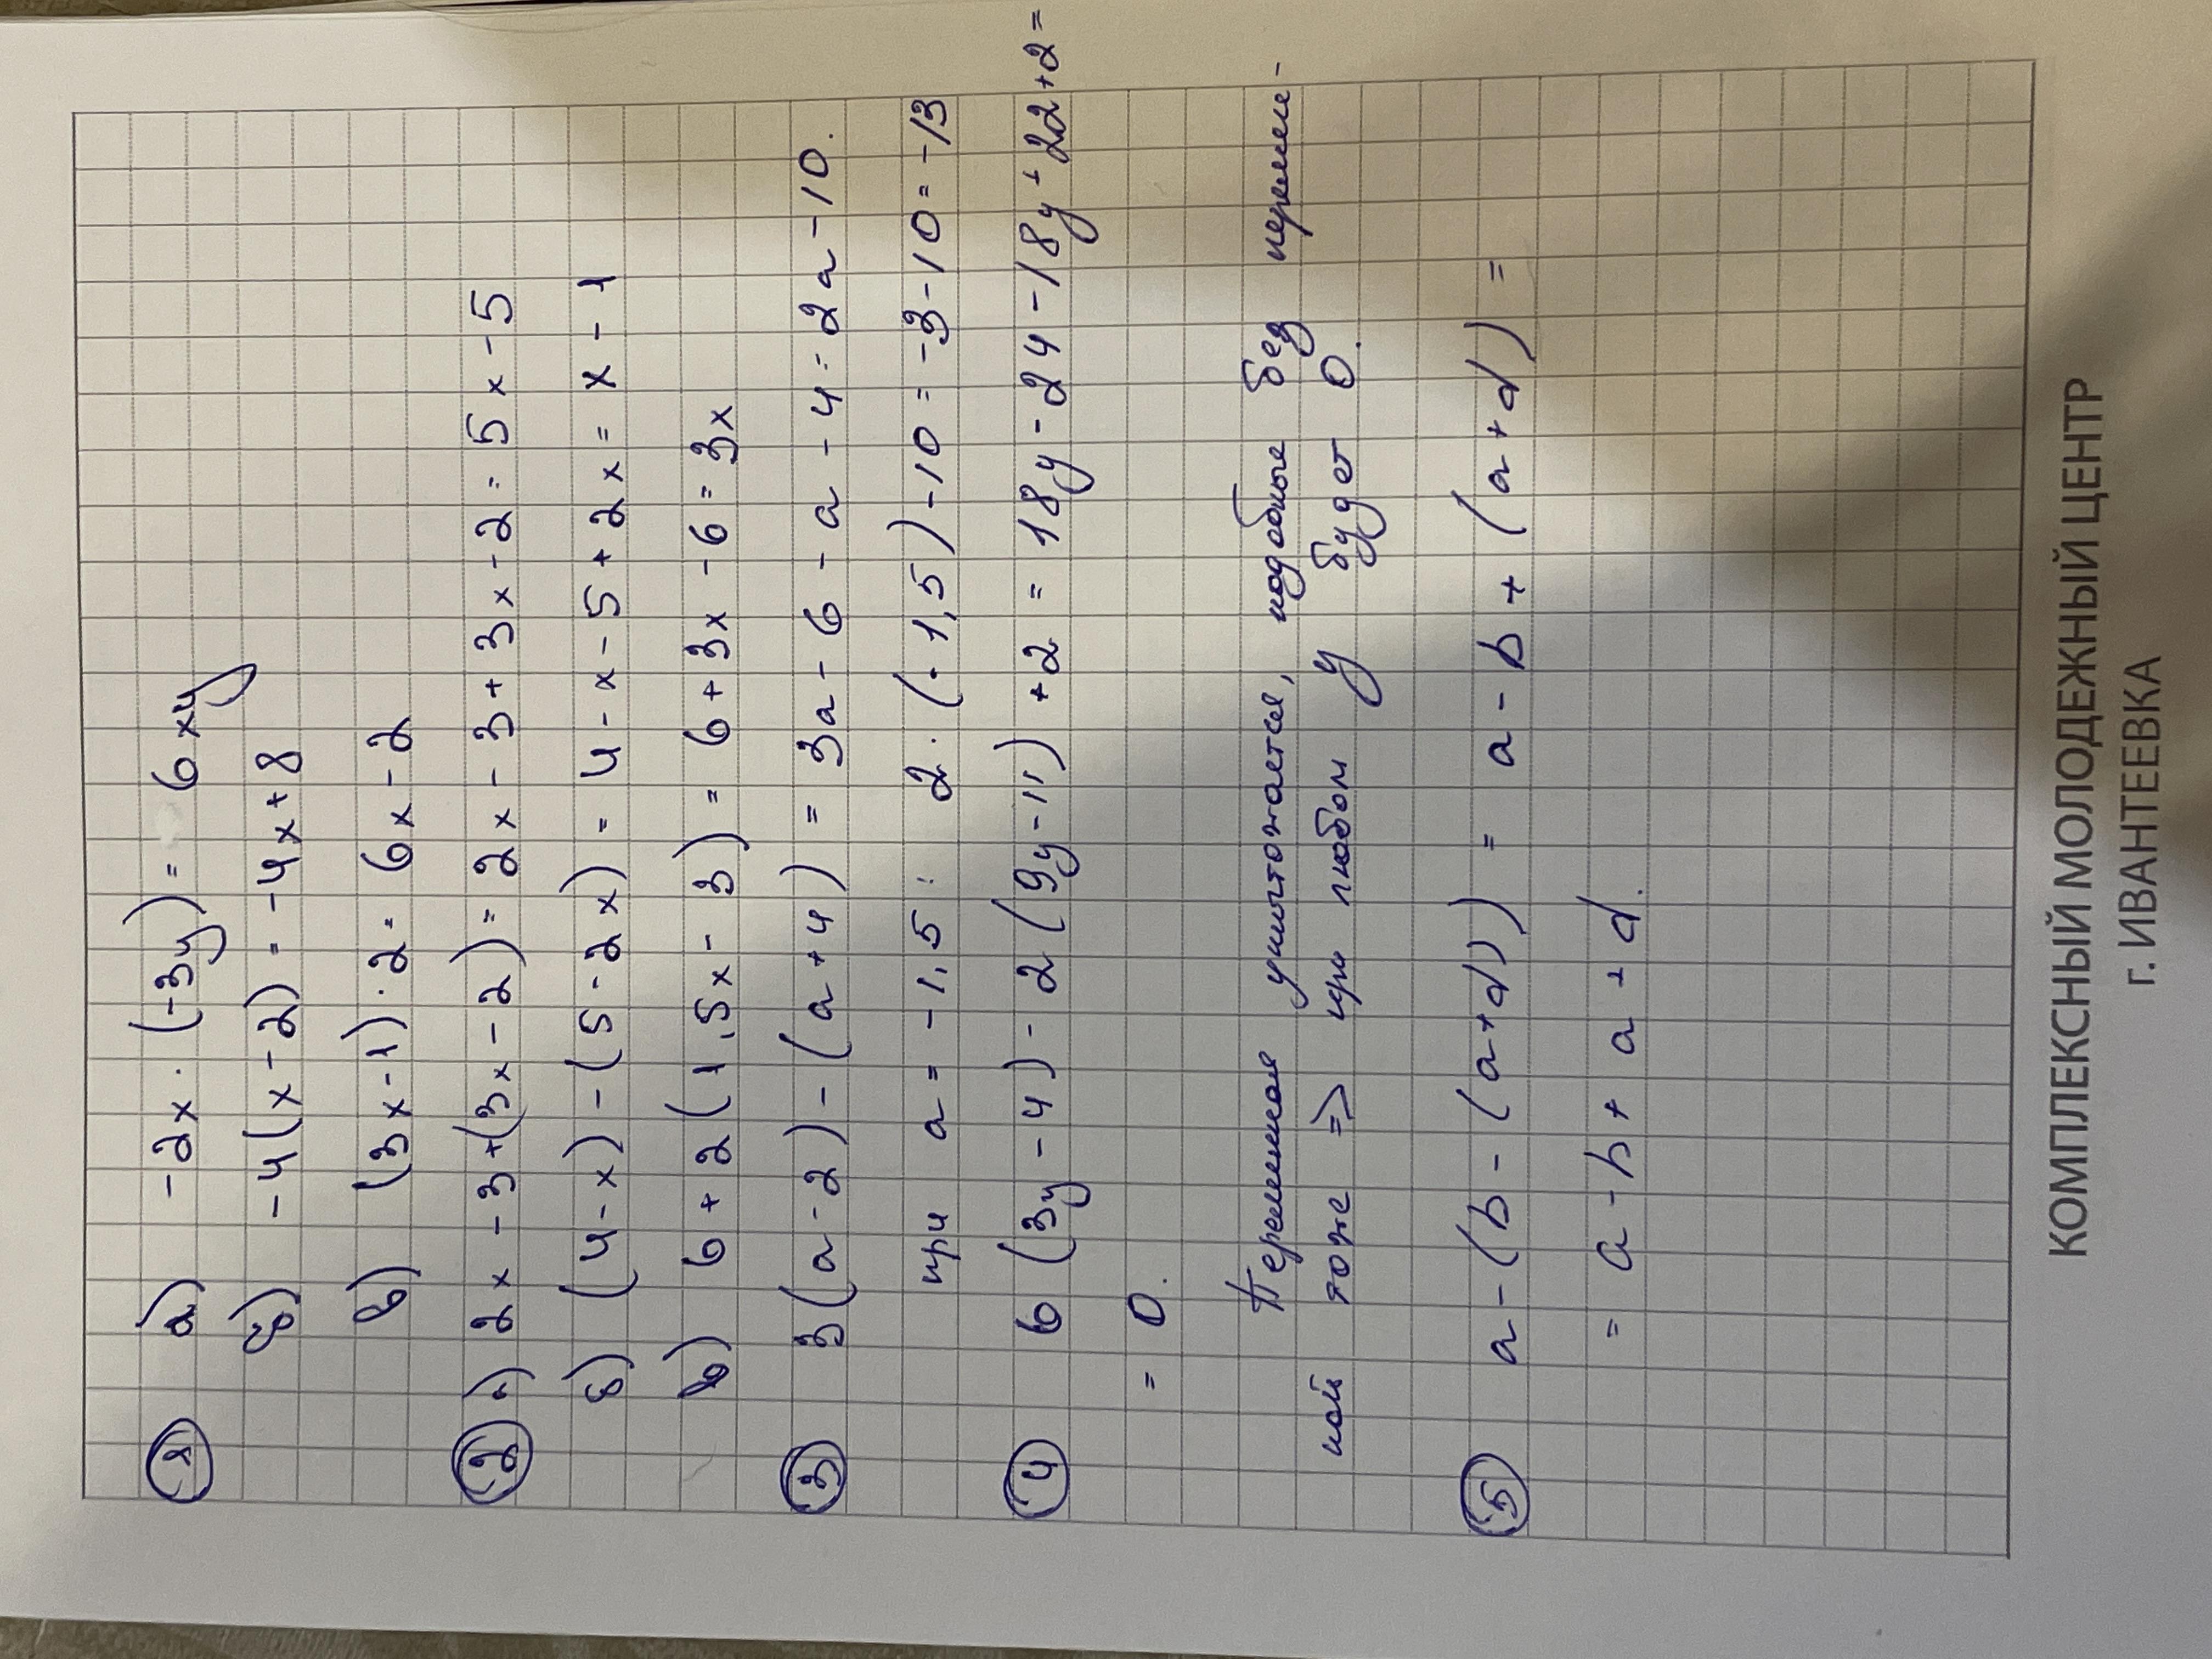 ① а) -2x · (-3y) = 6xy
б) -4(x-2) = -4x+8
в) (3x-1) · 2 = 6x-2
② а) 2x-3+(3x-2) = 2x-3+3x-2 = 5x-5
б) (4-x)-(5-2x) = 4-x-5+2x = x-1
в) 6+2(1,5x-3) = 6+3x-6 = 3x
③ 3(a-2)-(a+4) = 3a-6-a-4 = 2a-10.
при a = -1,5 : 2·(-1,5)-10 = -3-10 = -13
④ 6(3y-4)-2(9y-11)+2 = 18y-24-18y+22+2=
= 0.
Переменная уничтожается, подобные без перемен-
ной тоже => при любом y будет 0.
⑤ a-(b-(a+d)) = a-b+(a+d) =
= a-b+a+d.
КОМПЛЕКСНЫЙ МОЛОДЕЖНЫЙ ЦЕНТР
г. ИВАНТЕЕВКА